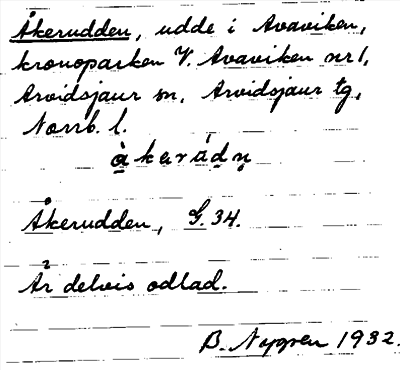 Åkerudden, udde i Avaviken,
kronoparken V. Avaviken nr 1,
Arvidsjaur sn, Arvidsjaur tg,
Norrb. l.
Åkerudden, G. 34.
Är delvis odlad.
B. Nygren 1932.